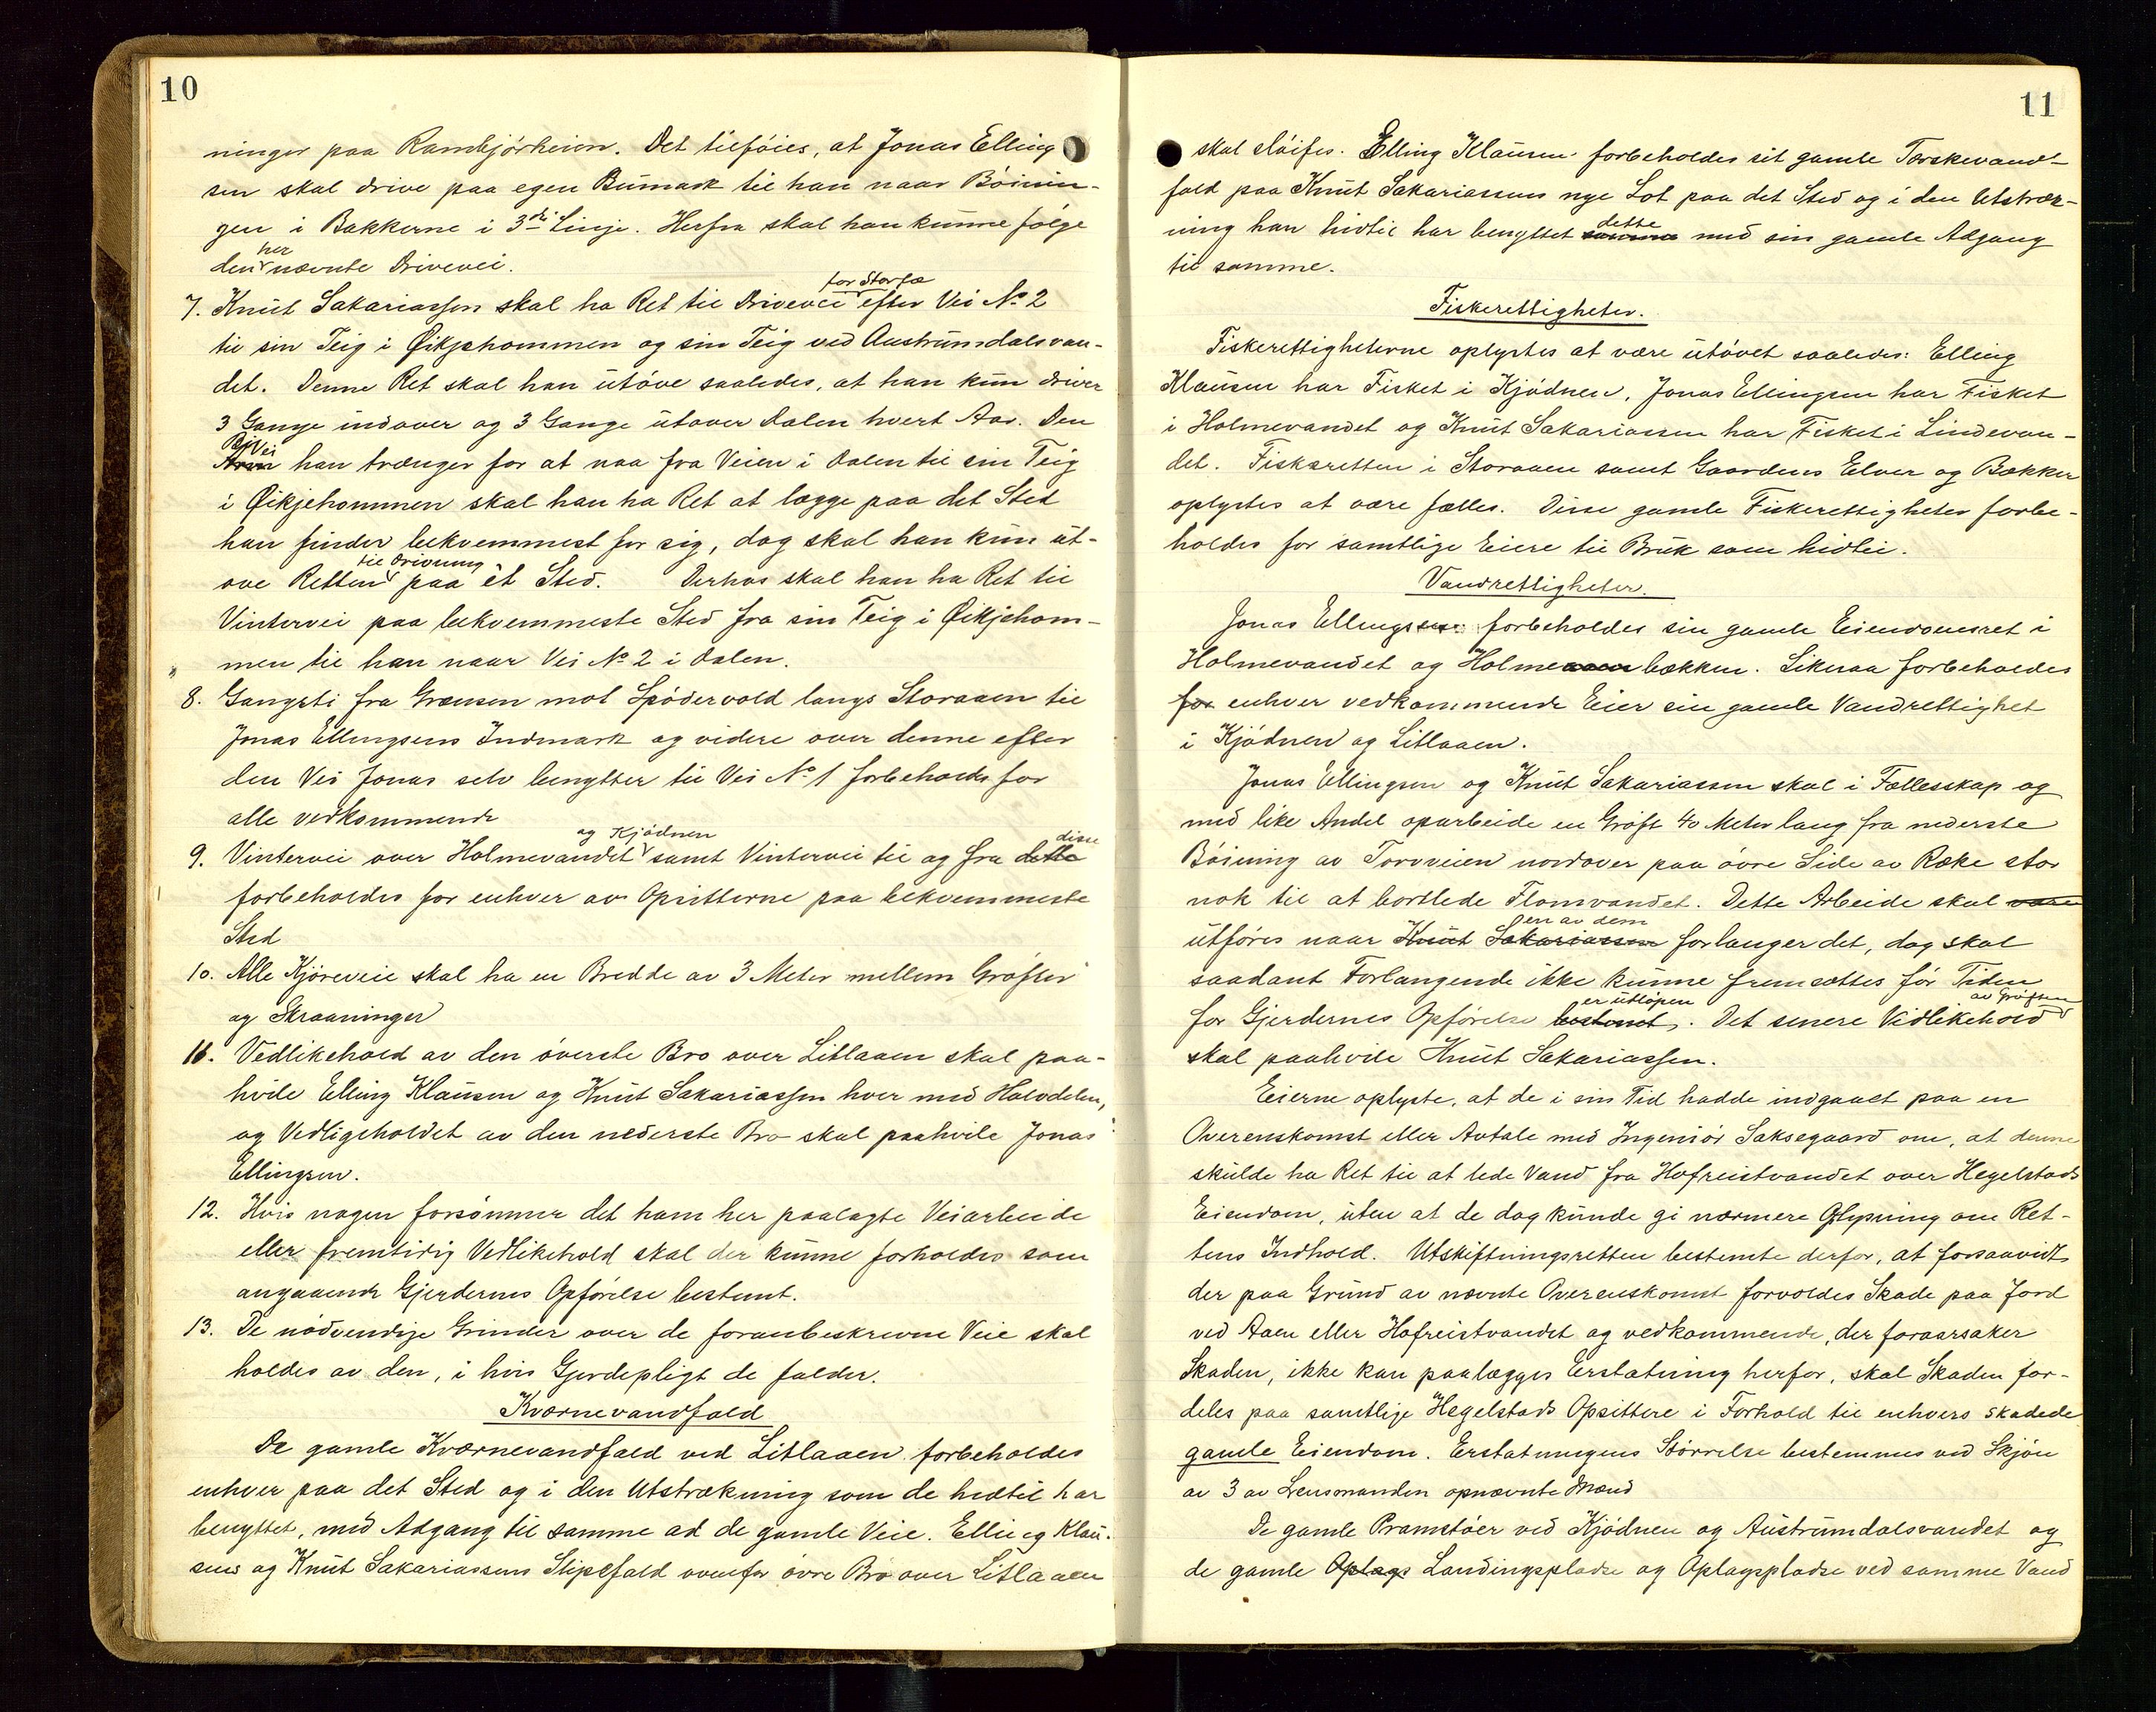 10
ninger paa Rambjörheien. Det tilföies, at Jonas Elling
sen skal drive paa egen Bumark til han naar Böinin-
gen i Bakkerne i 3die Linje. Herfra skal han kunne fölge
her
den nævnte Drivevei.
for Storfæ
7. Knut Sakariassen skal ha Ret til Drivevei efter Vei No 2
til sin Teig i Øikjehommen og sin Teig ved Austrumdalsvan-
det. Denne Ret skal han utöve saaledes, at han kun driver
3 Gange indover og 3 Gange utover Dalen hvert Aar. Den
Bi Vei
han trænger for at naa fra Veien i Dalen til sin Teig
i Øikjehommen skal han ha Ret at lægge paa det Sted
han finder bekvemmest for sig, dog skal han kun ut-
til Drivning
öve Retten paa èt Sted. Derhos skal han ha Ret til
Vintervei paa bekvemmeste Sted fra sin Teig i Øikjehom-
men til han naar Vei No 2 i Dalen.
8. Gangsti fra Grænsen mot Spödervold langs Storaaen til
Jonas Ellingsens Indmark og videre over denne efter
den Vei Jonas selv benytter til Vei No 1 forbeholdes for
alle vedkommende
og Kjödnen
disse
9. Vintervei over Holmevandet samt Vintervei til og fra dette
forbeholdes for enhver av Opsitterne paa bekvemmeste
Sted
10. Alle Kjöreveie skal ha en Bredde av 3 Meter mellem Gröfter
og Skraaninger
11. Vedlikehold av den överste Bro over Litlaaen skal paa-
hvile Elling Klausen og Knut Sakariassen hver med Halvdelen,
og Vedligeholdet av den nederste Bro skal paahvile Jonas
Ellingsen.
12. Hvis nogen forsömmer det ham her paalagte Veiarbeide
eller fremtidig Vedlikehold skal der kunne forholdes som
angaaende Gjerdernes Opförelse bestemt.
13. De nödvendige Grinder over de foranbeskrevne Veie skal
holdes av den, i hvis Gjerdepligt de falder.
Kværnevandfald
De gamle Kværnevandfald ved Litlaaen forbeholdes
enhver paa det Sted og i den Utstrækning som de hidtil har
benyttet, med Adgang til samme ad de gamle Veie. Elling Klau-
sens og Knut Sakariassens Slipefald ovenfor övre Bro over Litlaaen
11
skal slöifes. Elling Klausen forbeholdes sit gamle Tærskevand-
fald paa Knut Sakariassens nye Lot paa det Sted og i den Utstræk-
dette
ning han hidtil har benyttet samme med sin gamle Adgang
til samme.
Fiskerettigheter.
Fiskerettigheterne oplystes at være utövet saaledes: Elling
Klausen har Fisket i Kjödnen, Jonas Ellingsen har Fisket
i Holmevandet og Knut Sakariassen har Fisket i Lindevan-
det. Fiskeretten i Storaaen samt Gaardens Elver og Bækker
oplystes at være fælles. Disse gamle Fiskerettigheter forbe-
holdes for samtlige Eiere til Bruk som hidtil.
Vandrettigheter.
Jonas Ellingsen forbeholdes sin gamle Eiendomsret i
Holmevandet og Holmeaaen bækken. Likesaa forbeholdes
for enhver vedkommende Eier sin gamle Vandrettighet
i Kjödnen og Litlaaen.
Jonas Ellingsen og Knut Sakariassen skal i Fællesskap og
med like Andel oparbeide en Gröft 40 Meter lang fra nederste
Böining av Torvveien nordover paa övre Side av Ræke stor
nok til at bortlede Flomvandet. Dette Arbeide skal være
en av dem
utföres naar Knut Sakariassen forlanger det, dog skal
saadant Forlangende ikke kunne fremsættes för Tiden
er utlöpen
av Gröften
for Gjerdernes Opförelse bestemt. Det senere Vidlikehold
skal paahvile Knut Sakariassen.
Eierne oplyste, at de i sin Tid hadde indgaaet paa en
Overenskomst eller Avtale med Ingeniör Saksegaard om, at denne
skulde ha Ret til at lede Vand fra Hofreistvandet over Hegelstads
Eiendom, uten at de dog kunde gi nærmere Oplysning om Ret-
tens Indhold. Utskiftningsretten bestemte derfor, at forsaavidt
der paa Grund av nævnte Overenskomst forvoldes Skade paa Jord
ved Aaen eller Hofreistvandet og vedkommende, der foraarsaker
Skaden, ikke kan paalægges Erstatning herfor, skal Skaden for-
deles paa samtlige Hegelstads Opsittere i Forhold til enhvers skadede
gamle Eiendom. Erstatningens Störrelse bestemmes ved Skjön
av 3 av Lensmanden opnævnte Mænd
De gamle Pramstöer ved Kjödnen og Austrumdalsvandet og
de gamle Oplags Landingspladse og Oplagspladse ved samme Vand